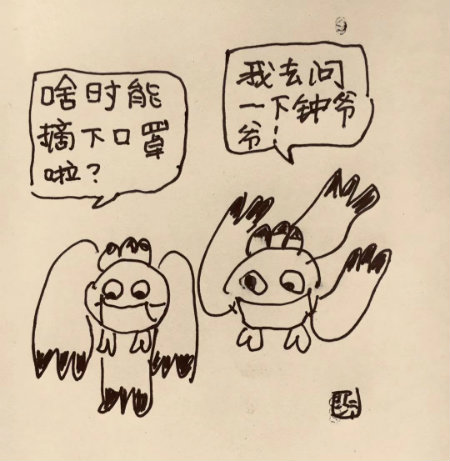 啥时能
摘下口罩
啦？
我去问
一下钟爷
爷！